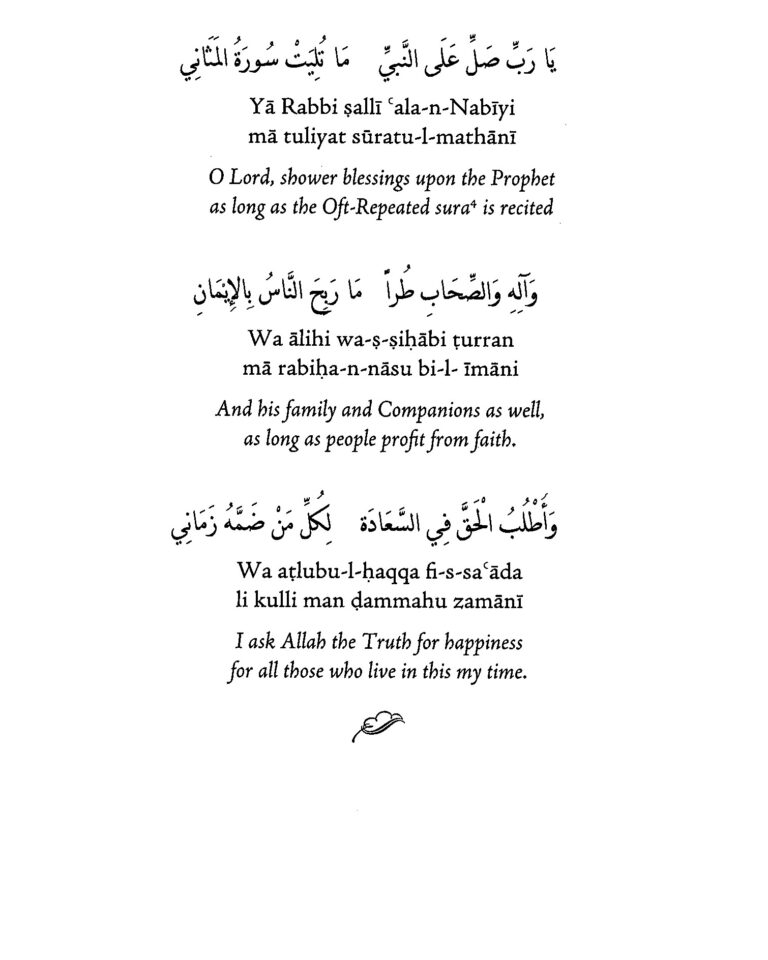 يَا رَبِّ صَلِّ عَلَى النَّبيِّ مَا تُلِيَتْ سُورَةُ المَثَانِي
Yā Rabbi ṣallī ʿala-n-Nabīyi
mā tuliyat sūratu-l-mathānī
O Lord, shower blessings upon the Prophet
as long as the Oft-Repeated sura⁴ is recited
وَآلِهِ وَالصِّحَابِ طُراً مَا رَبِحَ النَّاسُ بِالإِيْمَانِ
Wa ālihi wa-ṣ-ṣiḥābi ṭurran
mā rabiḥa-n-nāsu bi-l- īmāni
And his family and Companions as well,
as long as people profit from faith.
وَأَطْلُبُ الْحَقَّ فِي السَّعَادَة لِكُلِّ مَنْ ضَمَّهُ زَمَانِي
Wa aṭlubu-l-ḥaqqa fi-s-saʿāda
li kulli man ḍammahu zamānī
I ask Allah the Truth for happiness
for all those who live in this my time.